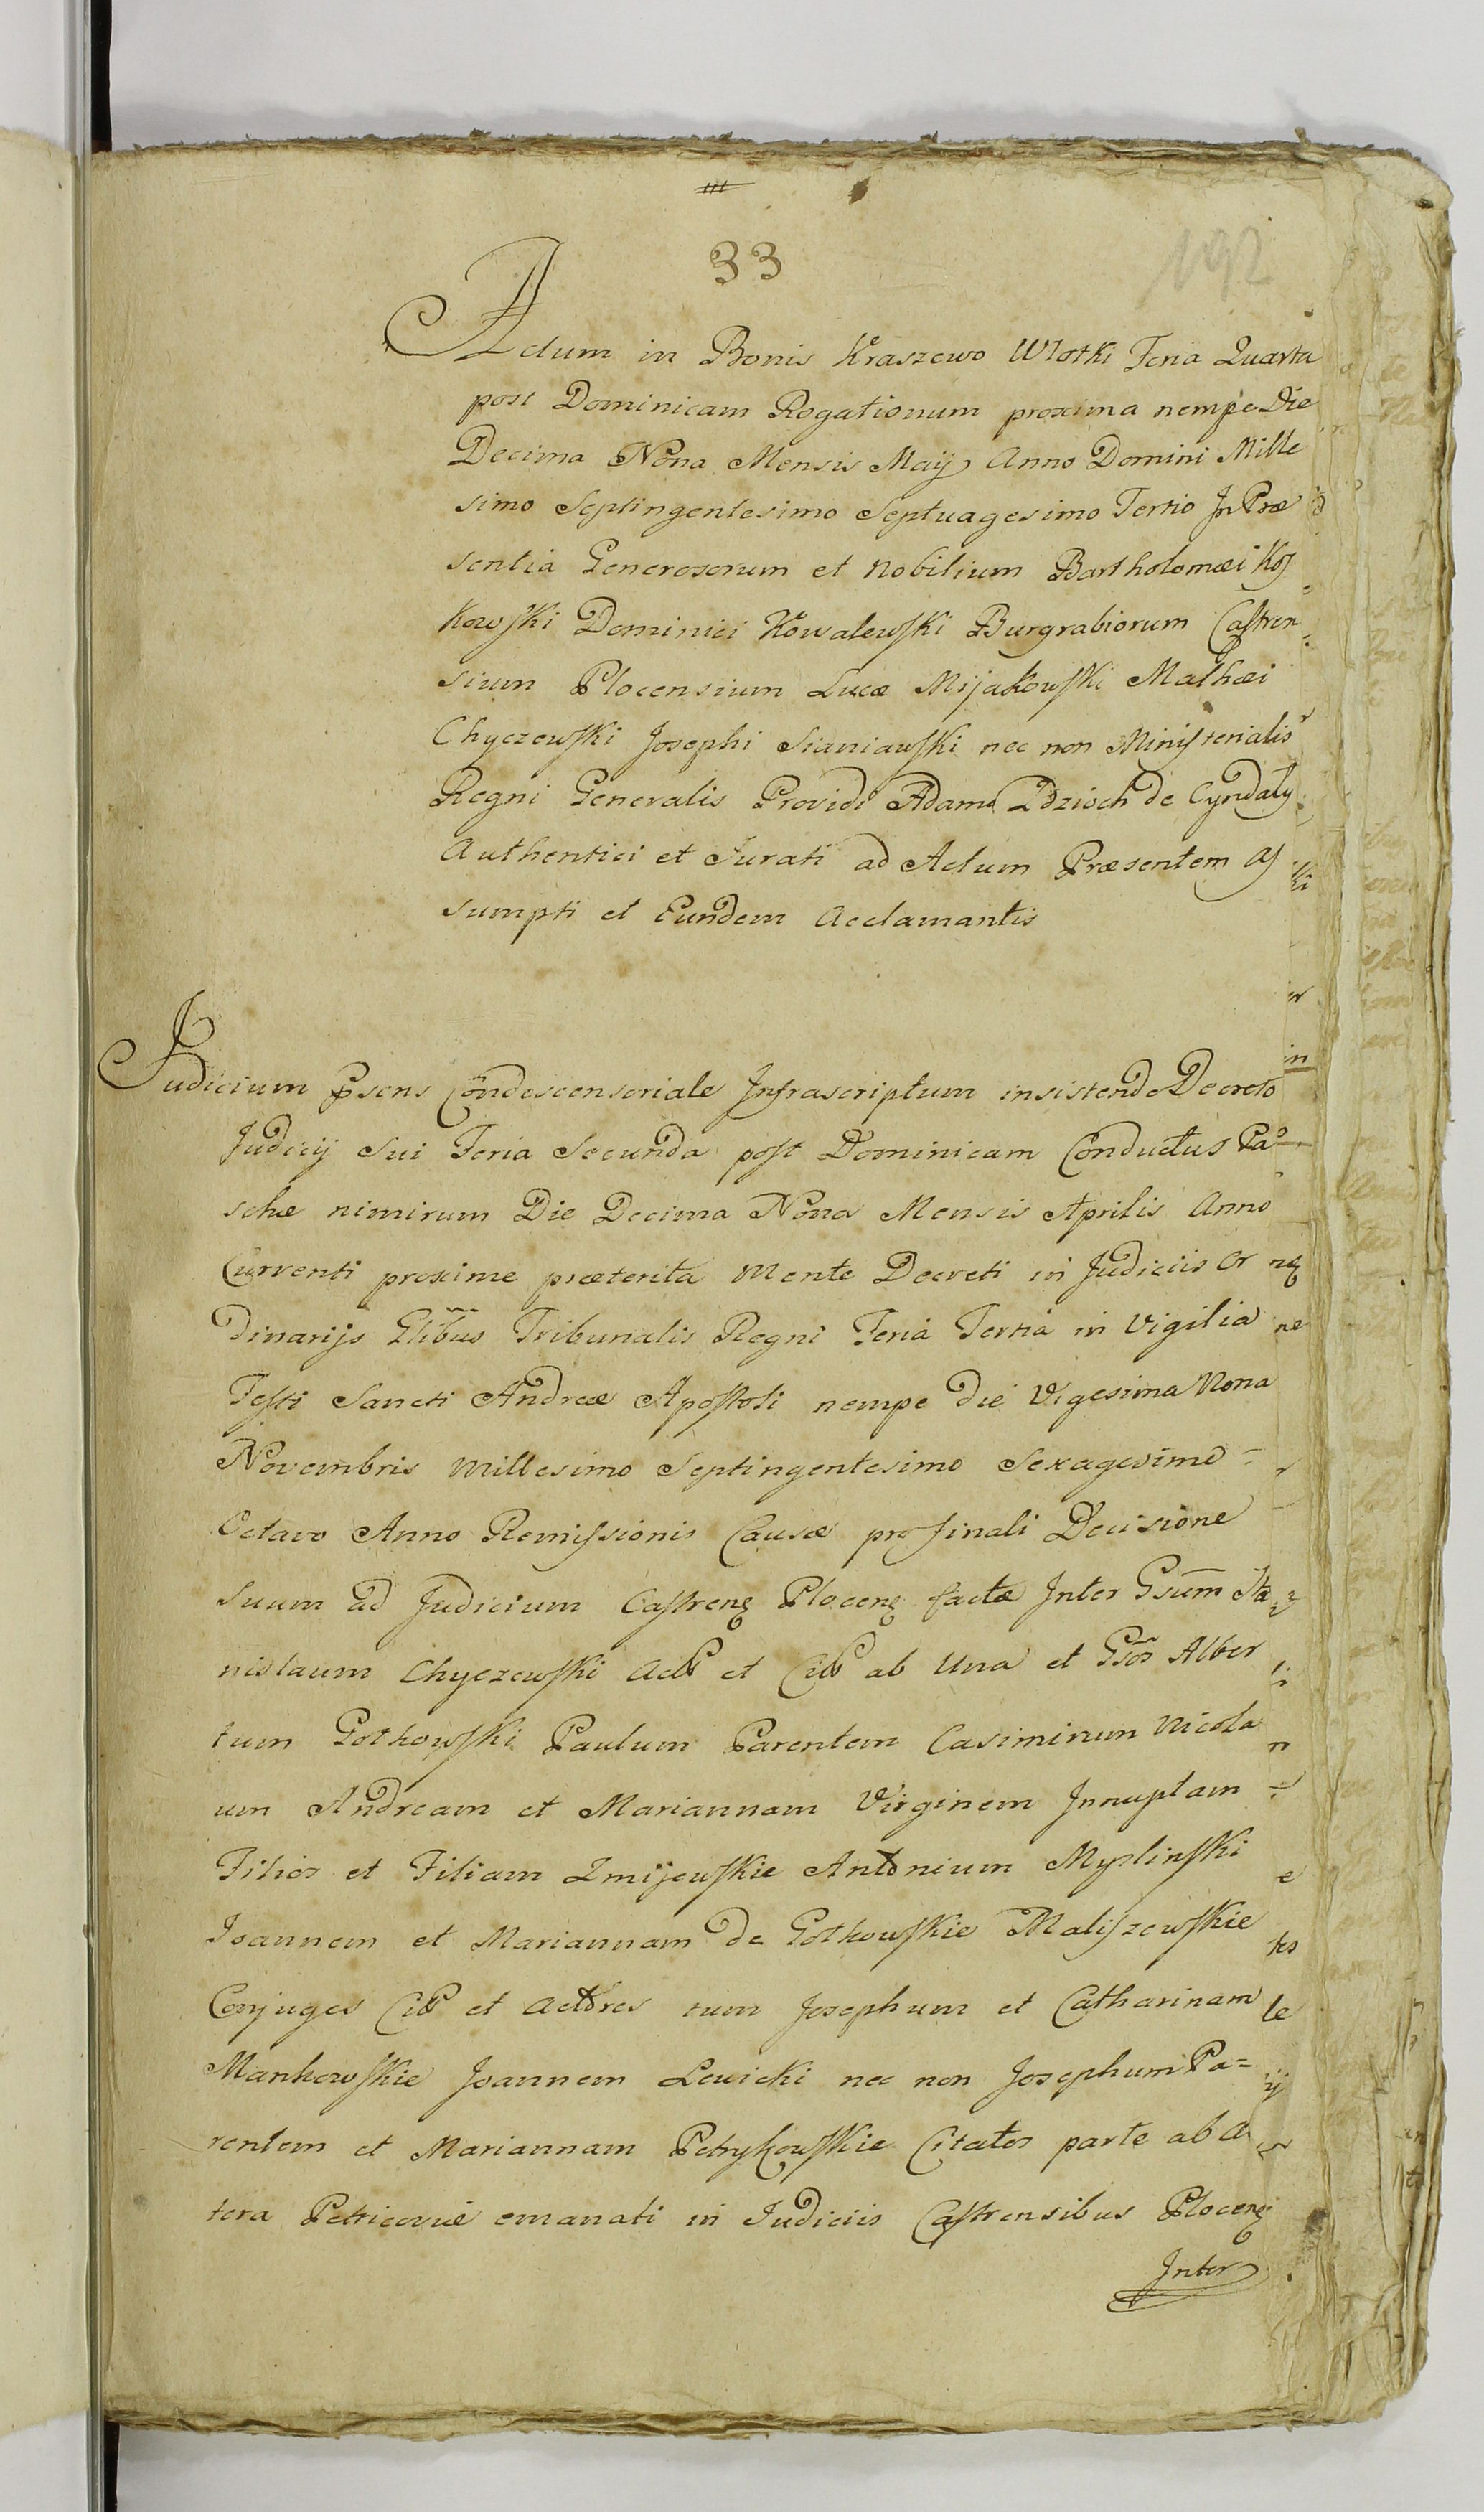 33
192
Actum in Bonis Kraszewo Wlotki Feria Quarta
post Dominicam Rogationum proxima nempe Die
Decima Nona Mensis Maij Anno Domini Mille
simo Septingentesimo Septuagesimo Tertio In Præ
sentia Generosorum et Nobilium Bartholomæi Kos
kowski Dominici Kowalewski Burgrabiorum Castren
sium Plocensium Lucæ Mijakowski Mathæi
Chyczewski Josephi Sianiawski nec non Ministerialis
Regni Generalis Providi Adami Zdzioch de Cyndaty
Authentici et Jurati ad Actum Præsentem As
sumpti et Eundem Acclamantis
Judicium Psens Condescensoriale Infrascriptum insistendo Decreto
Judicij Sui Feria Secunda post Dominicam Conductus Pa
schæ nimirum Die Decima Nona Mensis Aprilis Anno
Currenti proxime præterita Mente Decreti in Judiciis Or
dinarijs Glibus Tribunalis Regni Feria Tertia in Vigilia
Festi Sancti Andreæ Apostoli nempe die Vigesima Nona
Novembris Millesimo Septingentesimo Sexagesimo =
Octavo Anno Remissionis Causæ pro finali Decisione
Suum ad Judicium Castren Plocen factæ Inter Gsum Sta
nislaum Chyczewski et ab Una et Gsos Alber
tum Gotkowski Paulum Parentem Casimirum Nicola
um Andream et Mariannam Virginem Innuptam
Filios et Filiam Zmijewskie Antonium Myslinski
Joannem et Mariannam de Gotkowskie Maliszewskie
Conjuges et Actores tum Josephum et Catharinam
Mankowskie Joannem Lewicki nec non Josephum Pa=
rentem et Mariannam Petrykowskie Citatos parte ab A
tera Petricoviæ emanati in Judiciis Castrensibus Plocen
Inter